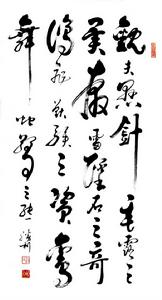 觀夫懸針垂露之
異奔雷墜石之奇
鴻飛獸駭之資鸞
舞蛇驚之態